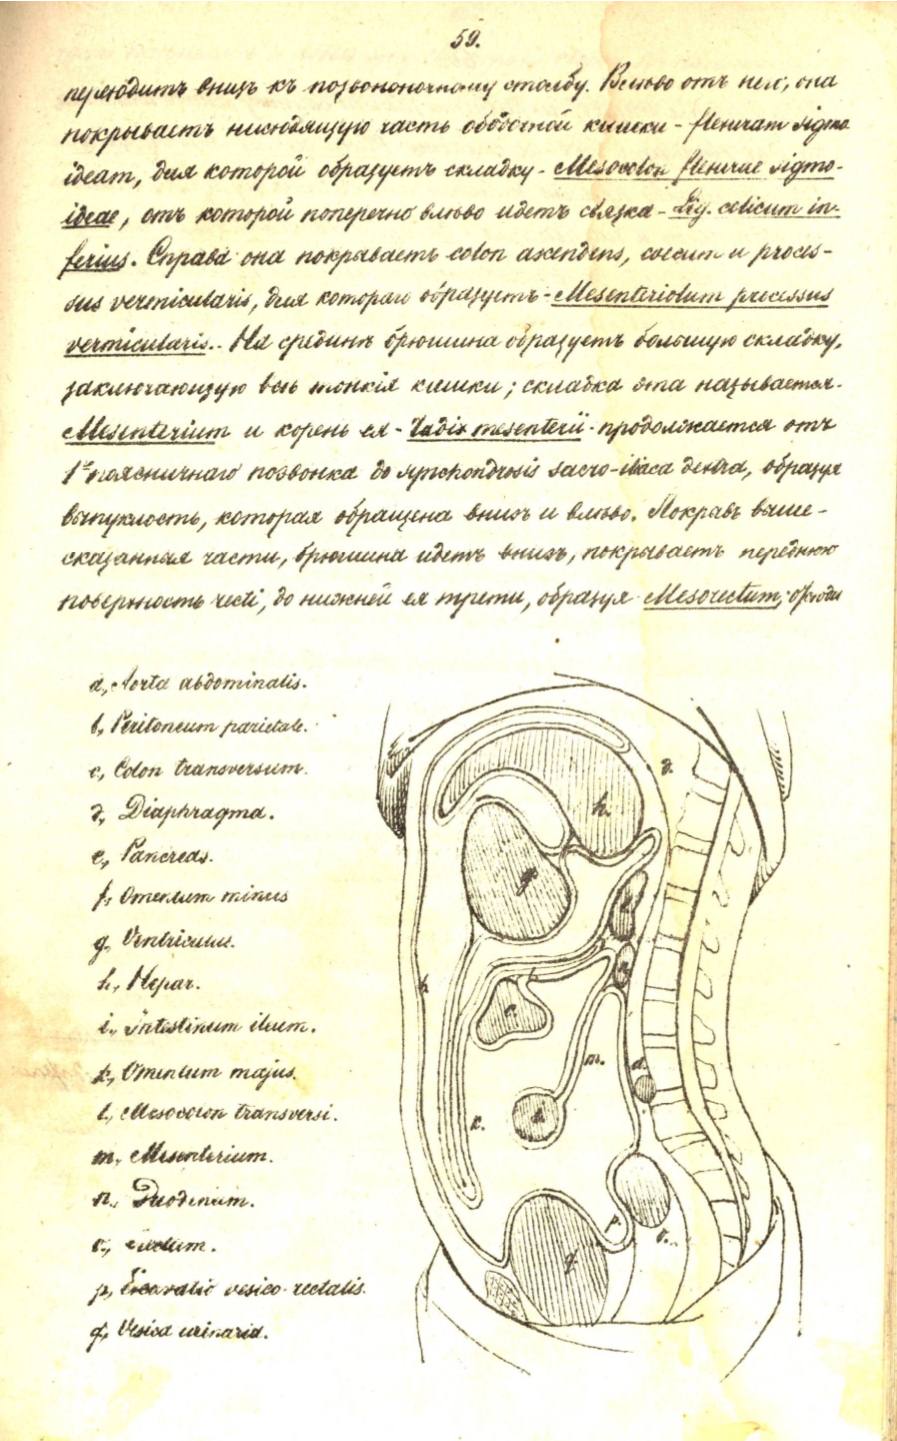 59.
переходитъ внизъ къ позвоночному столбу. Влѣво отъ нея, она
покрываетъ нисходящую часть ободочной кишки - flexuram sigmo
ideam, для которой образуетъ складку - Mesocolon flexurae sigmo-
ideae, отъ которой поперечно влѣво идетъ связка - Lig. colicum in-
ferius. Справа она покрываетъ colon ascendens, coecum и proces-
sus vermicularis, для котораго образуетъ - Mesenteriolum processus
vermicularis. На срединѣ брюшина образуетъ большую складку,
заключающую всѣ тонкія кишки; складка эта называется -
Mesenterium и корень ея - Radix mesenterii - продолжается отъ
1го поясничнаго позвонка до synchondrosis sacro-iliaca dextra, образуя
выпуклость, которая обращена внизъ и влѣво. Покрывъ выше-
сказанныя части, брюшина идетъ внизъ, покрываетъ переднюю
поверхность recti, до нижней ея трети, образуя Mesorectum;
a, Aorta abdominalis.
b, Peritoneum parietale.
c, Colon transversum.
d, Diaphragma.
e, Pancreas.
f, Omentum minus
g, Ventriculus.
h, Hepar.
i, Intestinum ileum.
k, Omentum majus.
l, Mesocolon transversi.
m, Mesenterium.
n, Duodenum.
o, rectum.
p, Excavatio vesico-rectalis.
q, Vesica urinaria.
d.
h.
g
b
c.
m.
a.
k.
p
o.
q